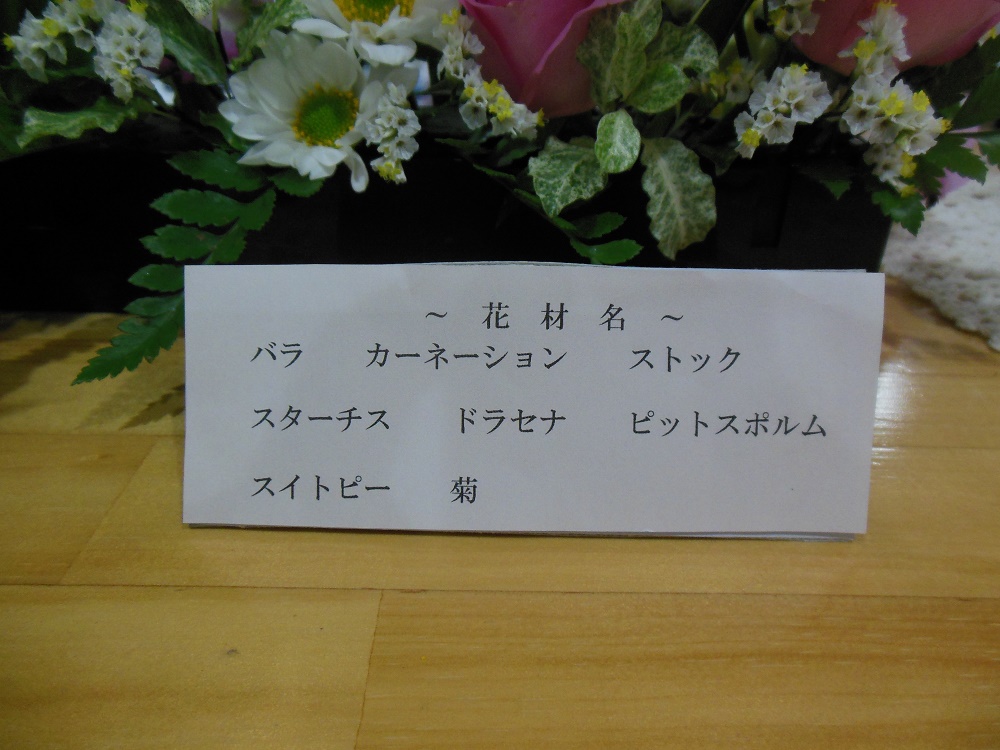 ～ 花 材 名 ～
バラ カーネーション ストック
スターチス ドラセナ ピットスポルム
スイトピー 菊